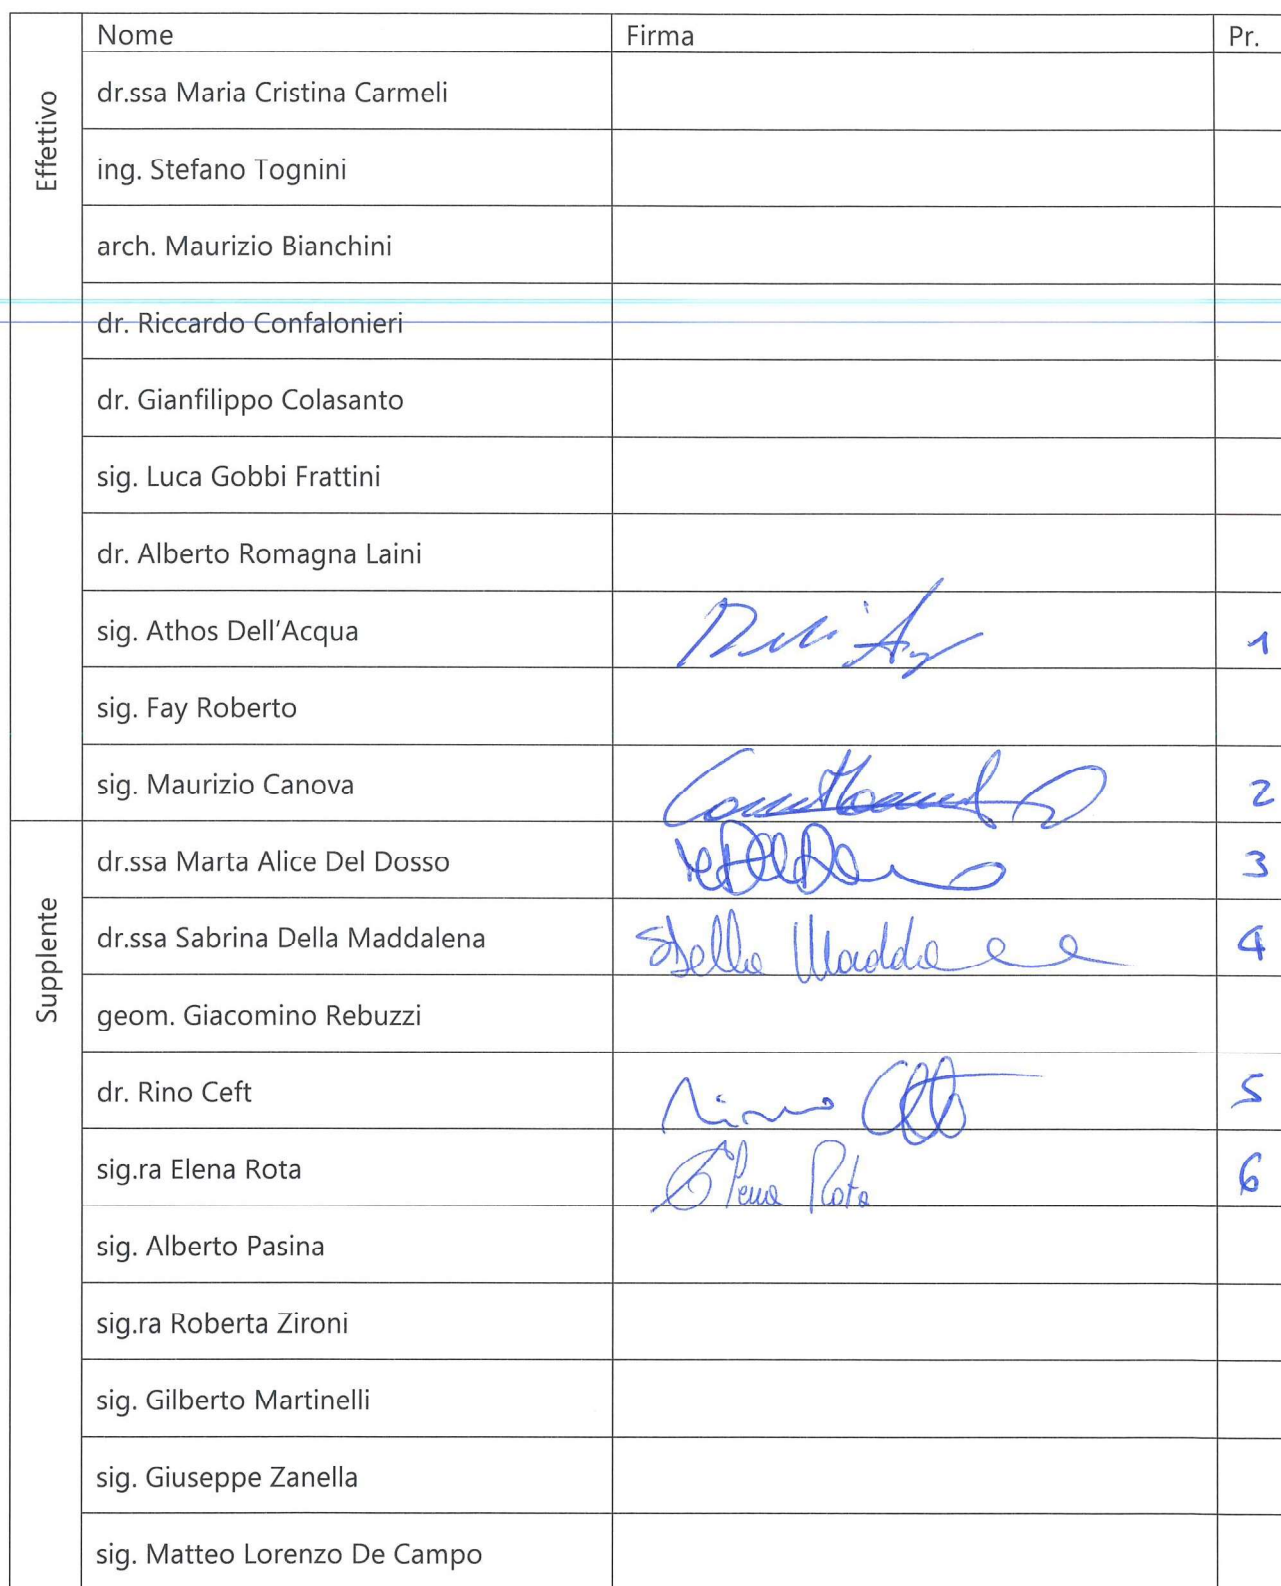 Nome Firma Pr.
Effettivo
dr.ssa Maria Cristina Carmeli
ing. Stefano Tognini
arch. Maurizio Bianchini
dr. Riccardo Confalonieri
dr. Gianfilippo Colasanto
sig. Luca Gobbi Frattini
dr. Alberto Romagna Laini
sig. Athos Dell'Acqua 1
sig. Fay Roberto
sig. Maurizio Canova 2
Supplente
dr.ssa Marta Alice Del Dosso 3
dr.ssa Sabrina Della Maddalena 4
geom. Giacomino Rebuzzi
dr. Rino Ceft 5
sig.ra Elena Rota Elena Rota 6
sig. Alberto Pasina
sig.ra Roberta Zironi
sig. Gilberto Martinelli
sig. Giuseppe Zanella
sig. Matteo Lorenzo De Campo